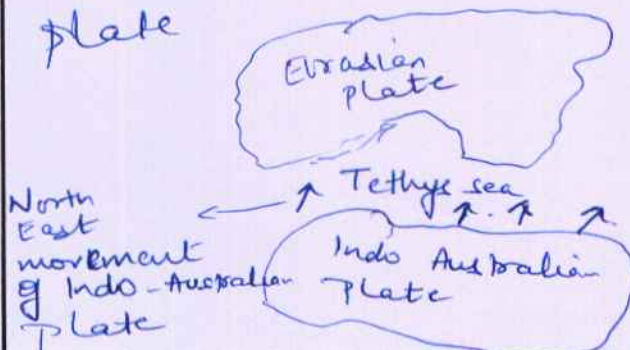 plate
Eurasian
plate
Tethys sea
North
East
movement
of Indo-Australian
plate
Indo Australian
Plate